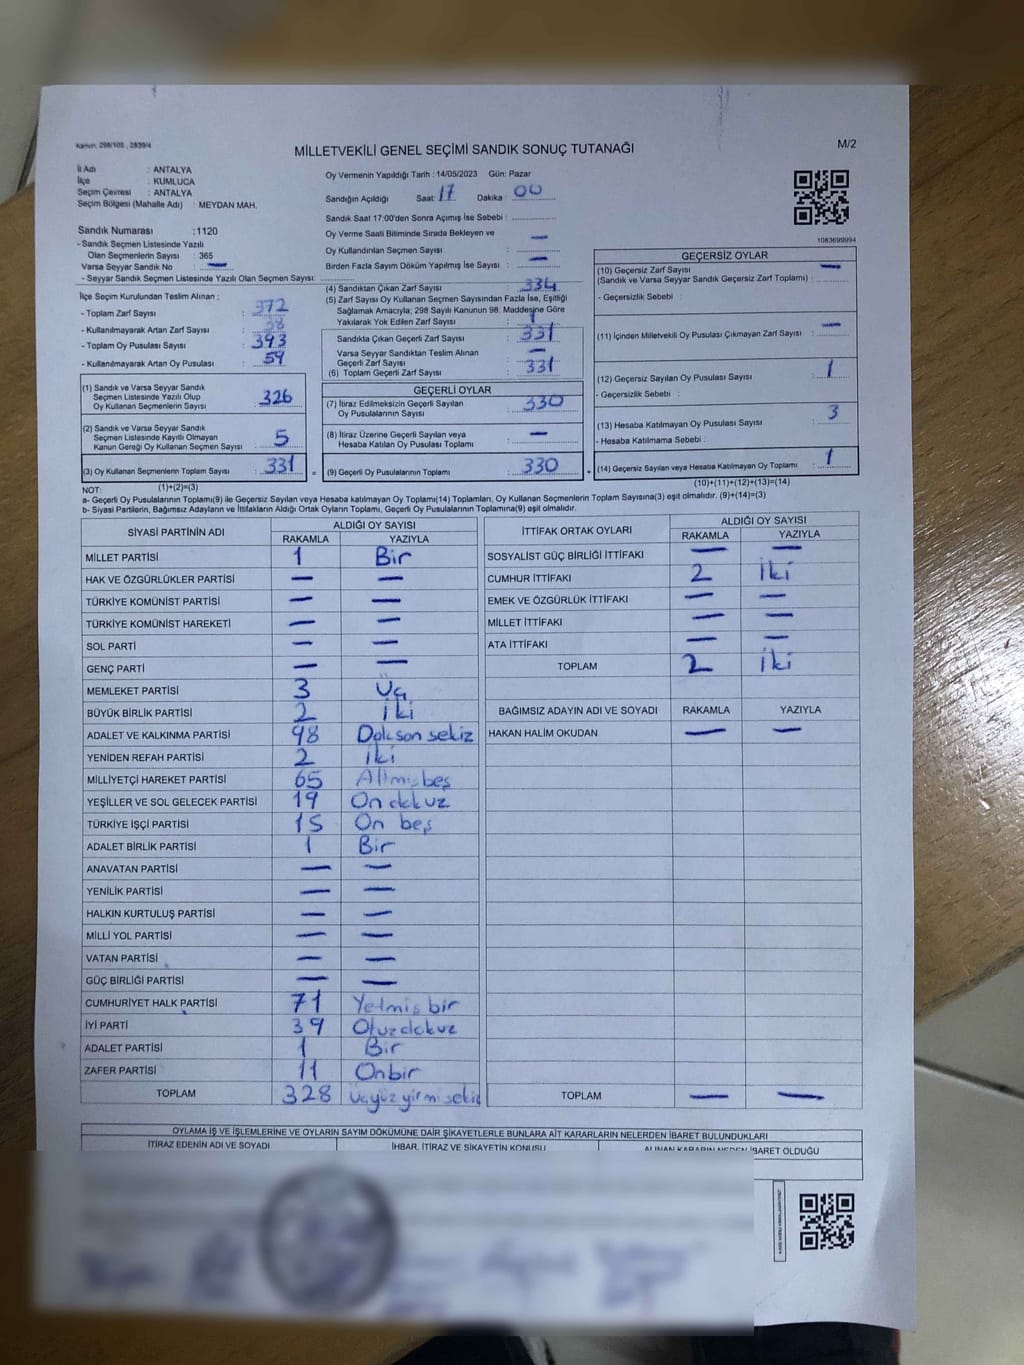 Kanun: 298/105 , 2839/4
MİLLETVEKİLİ GENEL SEÇİMİ SANDIK SONUÇ TUTANAĞI
M/2
İl Adı : ANTALYA
İlçe : KUMLUCA
Seçim Çevresi : ANTALYA
Seçim Bölgesi (Mahalle Adı) : MEYDAN MAH.
Sandık Numarası :1120
- Sandık Seçmen Listesinde Yazılı
Olan Seçmenlerin Sayısı : 365
Varsa Seyyar Sandık No : —
- Seyyar Sandık Seçmen Listesinde Yazılı Olan Seçmen Sayısı:
İlçe Seçim Kurulundan Teslim Alınan ;
- Toplam Zarf Sayısı : 372
- Kullanılmayarak Artan Zarf Sayısı : 38
- Toplam Oy Pusulası Sayısı : 393
- Kullanılmayarak Artan Oy Pusulası : 59
(1) Sandık ve Varsa Seyyar Sandık
Seçmen Listesinde Yazılı Olup
Oy Kullanan Seçmenlerin Sayısı : 326
(2) Sandık ve Varsa Seyyar Sandık
Seçmen Listesinde Kayıtlı Olmayan
Kanun Gereği Oy Kullanan Seçmen Sayısı : 5
(3) Oy Kullanan Seçmenlerin Toplam Sayısı : 331
Oy Vermenin Yapıldığı Tarih : 14/05/2023 Gün: Pazar
Sandığın Açıldığı Saat: 17 Dakika : 00
Sandık Saat 17:00'den Sonra Açımış İse Sebebi :
Oy Verme Saati Bitiminde Sırada Bekleyen ve
Oy Kullandırılan Seçmen Sayısı : —
Birden Fazla Sayım Döküm Yapılmış İse Sayısı : —
(4) Sandıktan Çıkan Zarf Sayısı : 334
(5) Zarf Sayısı Oy Kullanan Seçmen Sayısından Fazla İse, Eşitliği
Sağlamak Amacıyla; 298 Sayılı Kanunun 98. Maddesine Göre
Yakılarak Yok Edilen Zarf Sayısı :
Sandıkta Çıkan Geçerli Zarf Sayısı : 331
Varsa Seyyar Sandıktan Teslim Alınan
Geçerli Zarf Sayısı : —
(6) Toplam Geçerli Zarf Sayısı : 331
GEÇERLİ OYLAR
(7) İtiraz Edilmeksizin Geçerli Sayılan
Oy Pusulalarının Sayısı : 330
(8) İtiraz Üzerine Geçerli Sayılan veya
Hesaba Katılan Oy Pusulası Toplamı : —
= (9) Geçerli Oy Pusulalarının Toplamı : 330
1083699994
GEÇERSİZ OYLAR
(10) Geçersiz Zarf Sayısı
(Sandık ve Varsa Seyyar Sandık Geçersiz Zarf Toplamı) : —
- Geçersizlik Sebebi :
(11) İçinden Milletvekili Oy Pusulası Çıkmayan Zarf Sayısı : —
(12) Geçersiz Sayılan Oy Pusulası Sayısı : 1
- Geçersizlik Sebebi :
(13) Hesaba Katılmayan Oy Pusulası Sayısı : 3
- Hesaba Katılmama Sebebi :
+ (14) Geçersiz Sayılan veya Hesaba Katılmayan Oy Toplamı : 1
NOT: (1)+(2)=(3)
(10)+(11)+(12)+(13)=(14)
a- Geçerli Oy Pusulalarının Toplamı(9) ile Geçersiz Sayılan veya Hesaba katılmayan Oy Toplamı(14) Toplamları, Oy Kullanan Seçmenlerin Toplam Sayısına(3) eşit olmalıdır. (9)+(14)=(3)
b- Siyasi Partilerin, Bağımsız Adayların ve İttifakların Aldığı Ortak Oyların Toplamı, Geçerli Oy Pusulalarının Toplamına(9) eşit olmalıdır.
SİYASİ PARTİNİN ADI ALDIĞI OY SAYISI
RAKAMLA YAZIYLA
MİLLET PARTİSİ 1 Bir
HAK VE ÖZGÜRLÜKLER PARTİSİ — —
TÜRKİYE KOMÜNİST PARTİSİ — —
TÜRKİYE KOMÜNİST HAREKETİ — —
SOL PARTİ — —
GENÇ PARTİ — —
MEMLEKET PARTİSİ 3 Üç
BÜYÜK BİRLİK PARTİSİ 2 İki
ADALET VE KALKINMA PARTİSİ 98 Doksan sekiz
YENİDEN REFAH PARTİSİ 2 İki
MİLLİYETÇİ HAREKET PARTİSİ 65 Altmış beş
YEŞİLLER VE SOL GELECEK PARTİSİ 19 On dokuz
TÜRKİYE İŞÇİ PARTİSİ 15 On beş
ADALET BİRLİK PARTİSİ 1 Bir
ANAVATAN PARTİSİ — —
YENİLİK PARTİSİ — —
HALKIN KURTULUŞ PARTİSİ — —
MİLLİ YOL PARTİSİ — —
VATAN PARTİSİ — —
GÜÇ BİRLİĞİ PARTİSİ — —
CUMHURİYET HALK PARTİSİ 71 Yetmiş bir
İYİ PARTİ 39 Otuz dokuz
ADALET PARTİSİ 1 Bir
ZAFER PARTİSİ 11 Onbir
TOPLAM 328 Üçyüz yirmi sekiz
İTTİFAK ORTAK OYLARI ALDIĞI OY SAYISI
RAKAMLA YAZIYLA
SOSYALİST GÜÇ BİRLİĞİ İTTİFAKI — —
CUMHUR İTTİFAKI 2 İki
EMEK VE ÖZGÜRLÜK İTTİFAKI — —
MİLLET İTTİFAKI — —
ATA İTTİFAKI — —
TOPLAM 2 İki
BAĞIMSIZ ADAYIN ADI VE SOYADI RAKAMLA YAZIYLA
HAKAN HALİM OKUDAN — —
TOPLAM — —
OYLAMA İŞ VE İŞLEMLERİNE VE OYLARIN SAYIM DÖKÜMÜNE DAİR ŞİKAYETLERLE BUNLARA AİT KARARLARIN NELERDEN İBARET BULUNDUKLARI
İTİRAZ EDENİN ADI VE SOYADI İHBAR, İTİRAZ VE ŞİKAYETİN KONUSU ALINAN KARARIN NEDEN İBARET OLDUĞU